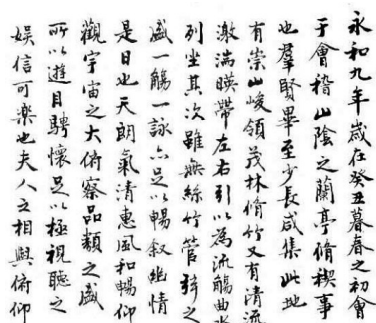 永和九年歲在癸丑暮春之初會
于會稽山陰之蘭亭脩稧事
也羣賢畢至少長咸集此地
有崇山峻領茂林脩竹又有清流
激湍暎帶左右引以為流觴曲水
列坐其次雖無絲竹管弦之
盛一觴一詠亦足以暢叙幽情
是日也天朗氣清惠風和暢仰
觀宇宙之大俯察品類之盛
所以遊目騁懷足以極視聽之
娛信可樂也夫人之相與俯仰